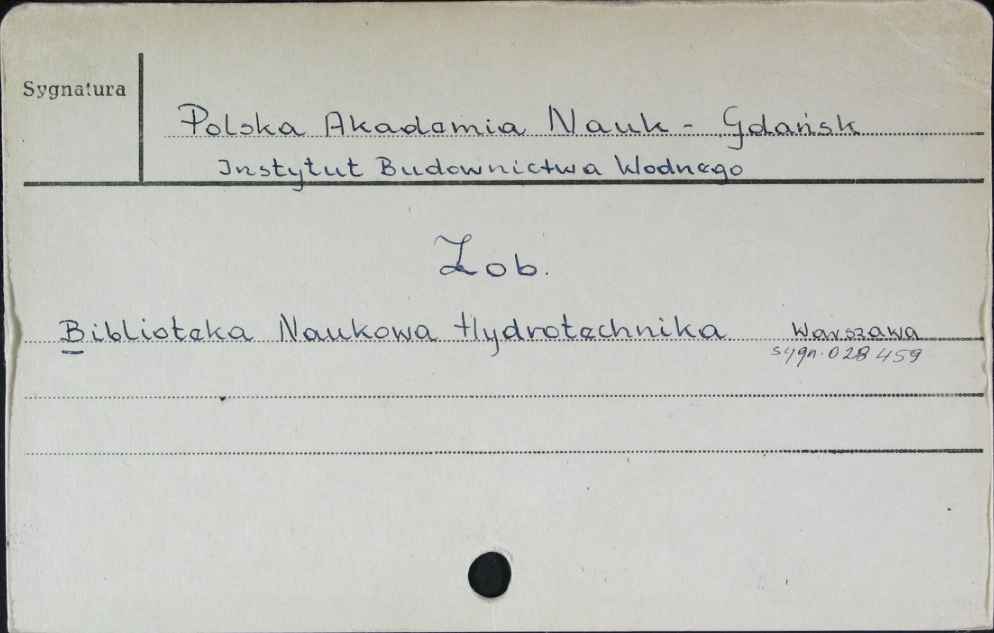 Sygnatura
Polska Akademia Nauk - Gdańsk
Instytut Budownictwa Wodnego
Zob.
Biblioteka Naukowa Hydrotechnika Warszawa
sygn. 028 459